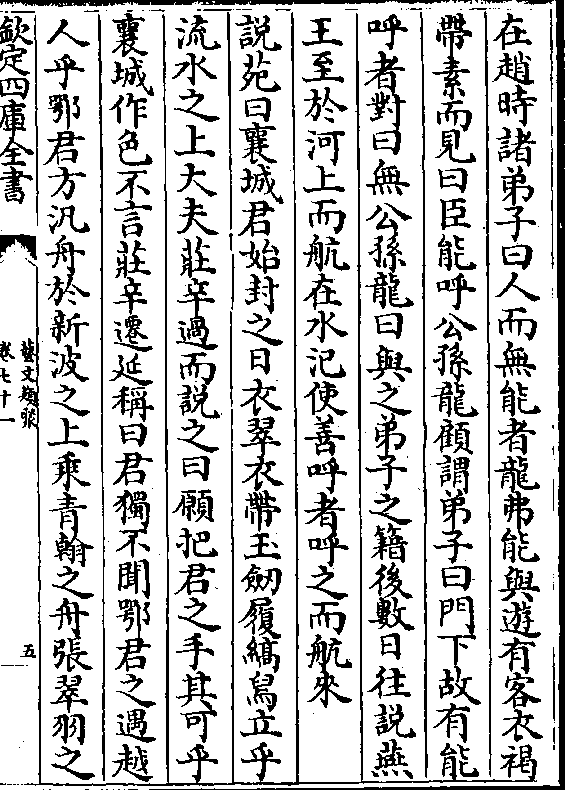 在趙時諸弟子曰人而無能者龍弗能與遊有客衣褐
帶素而見曰臣能呼公孫龍顧謂弟子曰門下故有能
呼者對曰無公孫龍曰與之弟子之籍後數日往說燕
王至於河上而航在水汜使善呼者呼之而航來
說苑曰襄城君始封之日衣翠衣帶玉劒履縞舄立乎
流水之上大夫莊辛過而說之曰願把君之手其可乎
襄城作色不言莊辛遷延稱曰君獨不聞鄂君之遇越
人乎鄂君方汎舟於新波之上乘青翰之舟張翠羽之
欽定四庫全書
藝文類聚
卷七十一
五